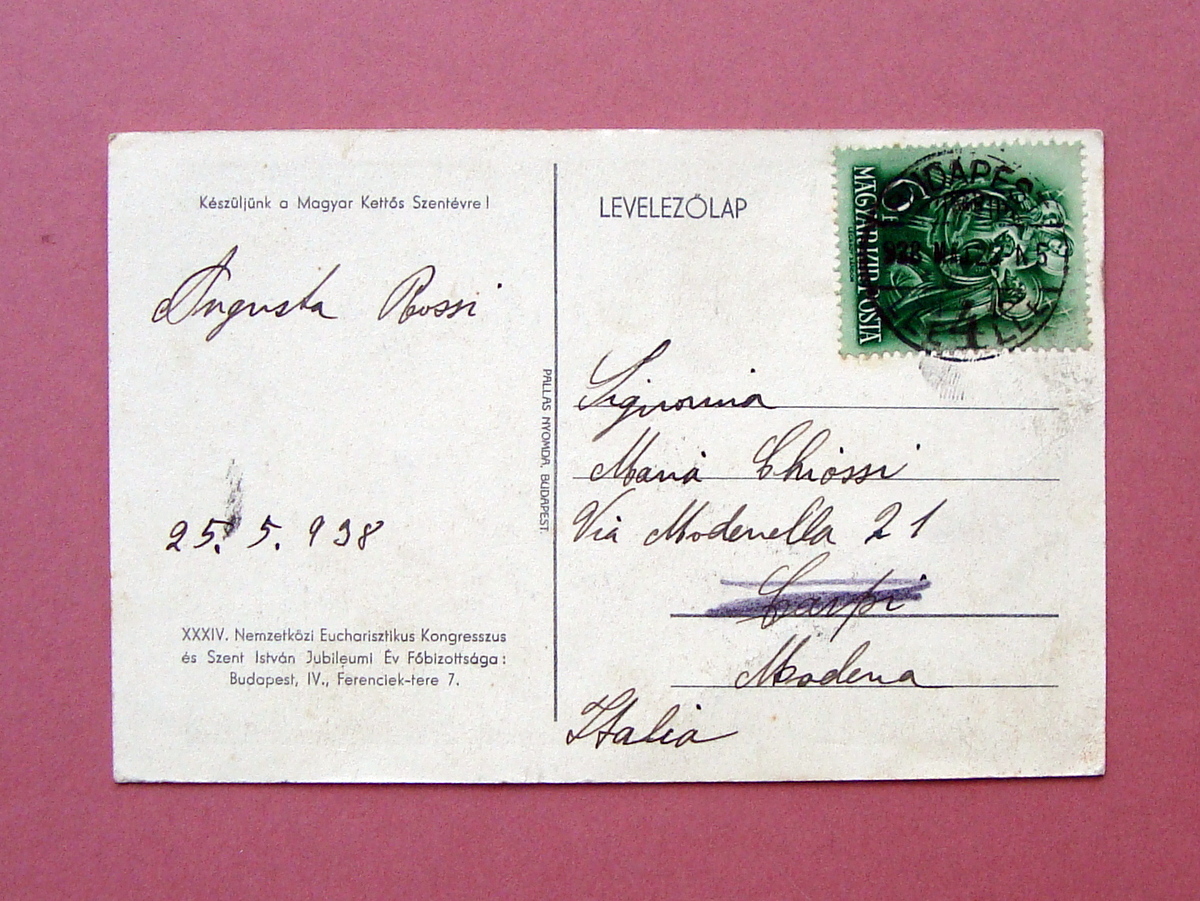 Készüljünk a Magyar Kettős Szentévre!
Augusta Rossi
25. 5. 938
XXXIV. Nemzetközi Eucharisztikus Kongresszus
és Szent István Jubileumi Év Főbizottsága:
Budapest, IV., Ferenciek-tere 7.
PALLAS NYOMDA, BUDAPEST.
LEVELEZŐLAP
MAGYAR KIR. POSTA
BUDAPEST
Signorina
Maria Chiossi
Via Modenella 21
Carpi
Modena
Italia